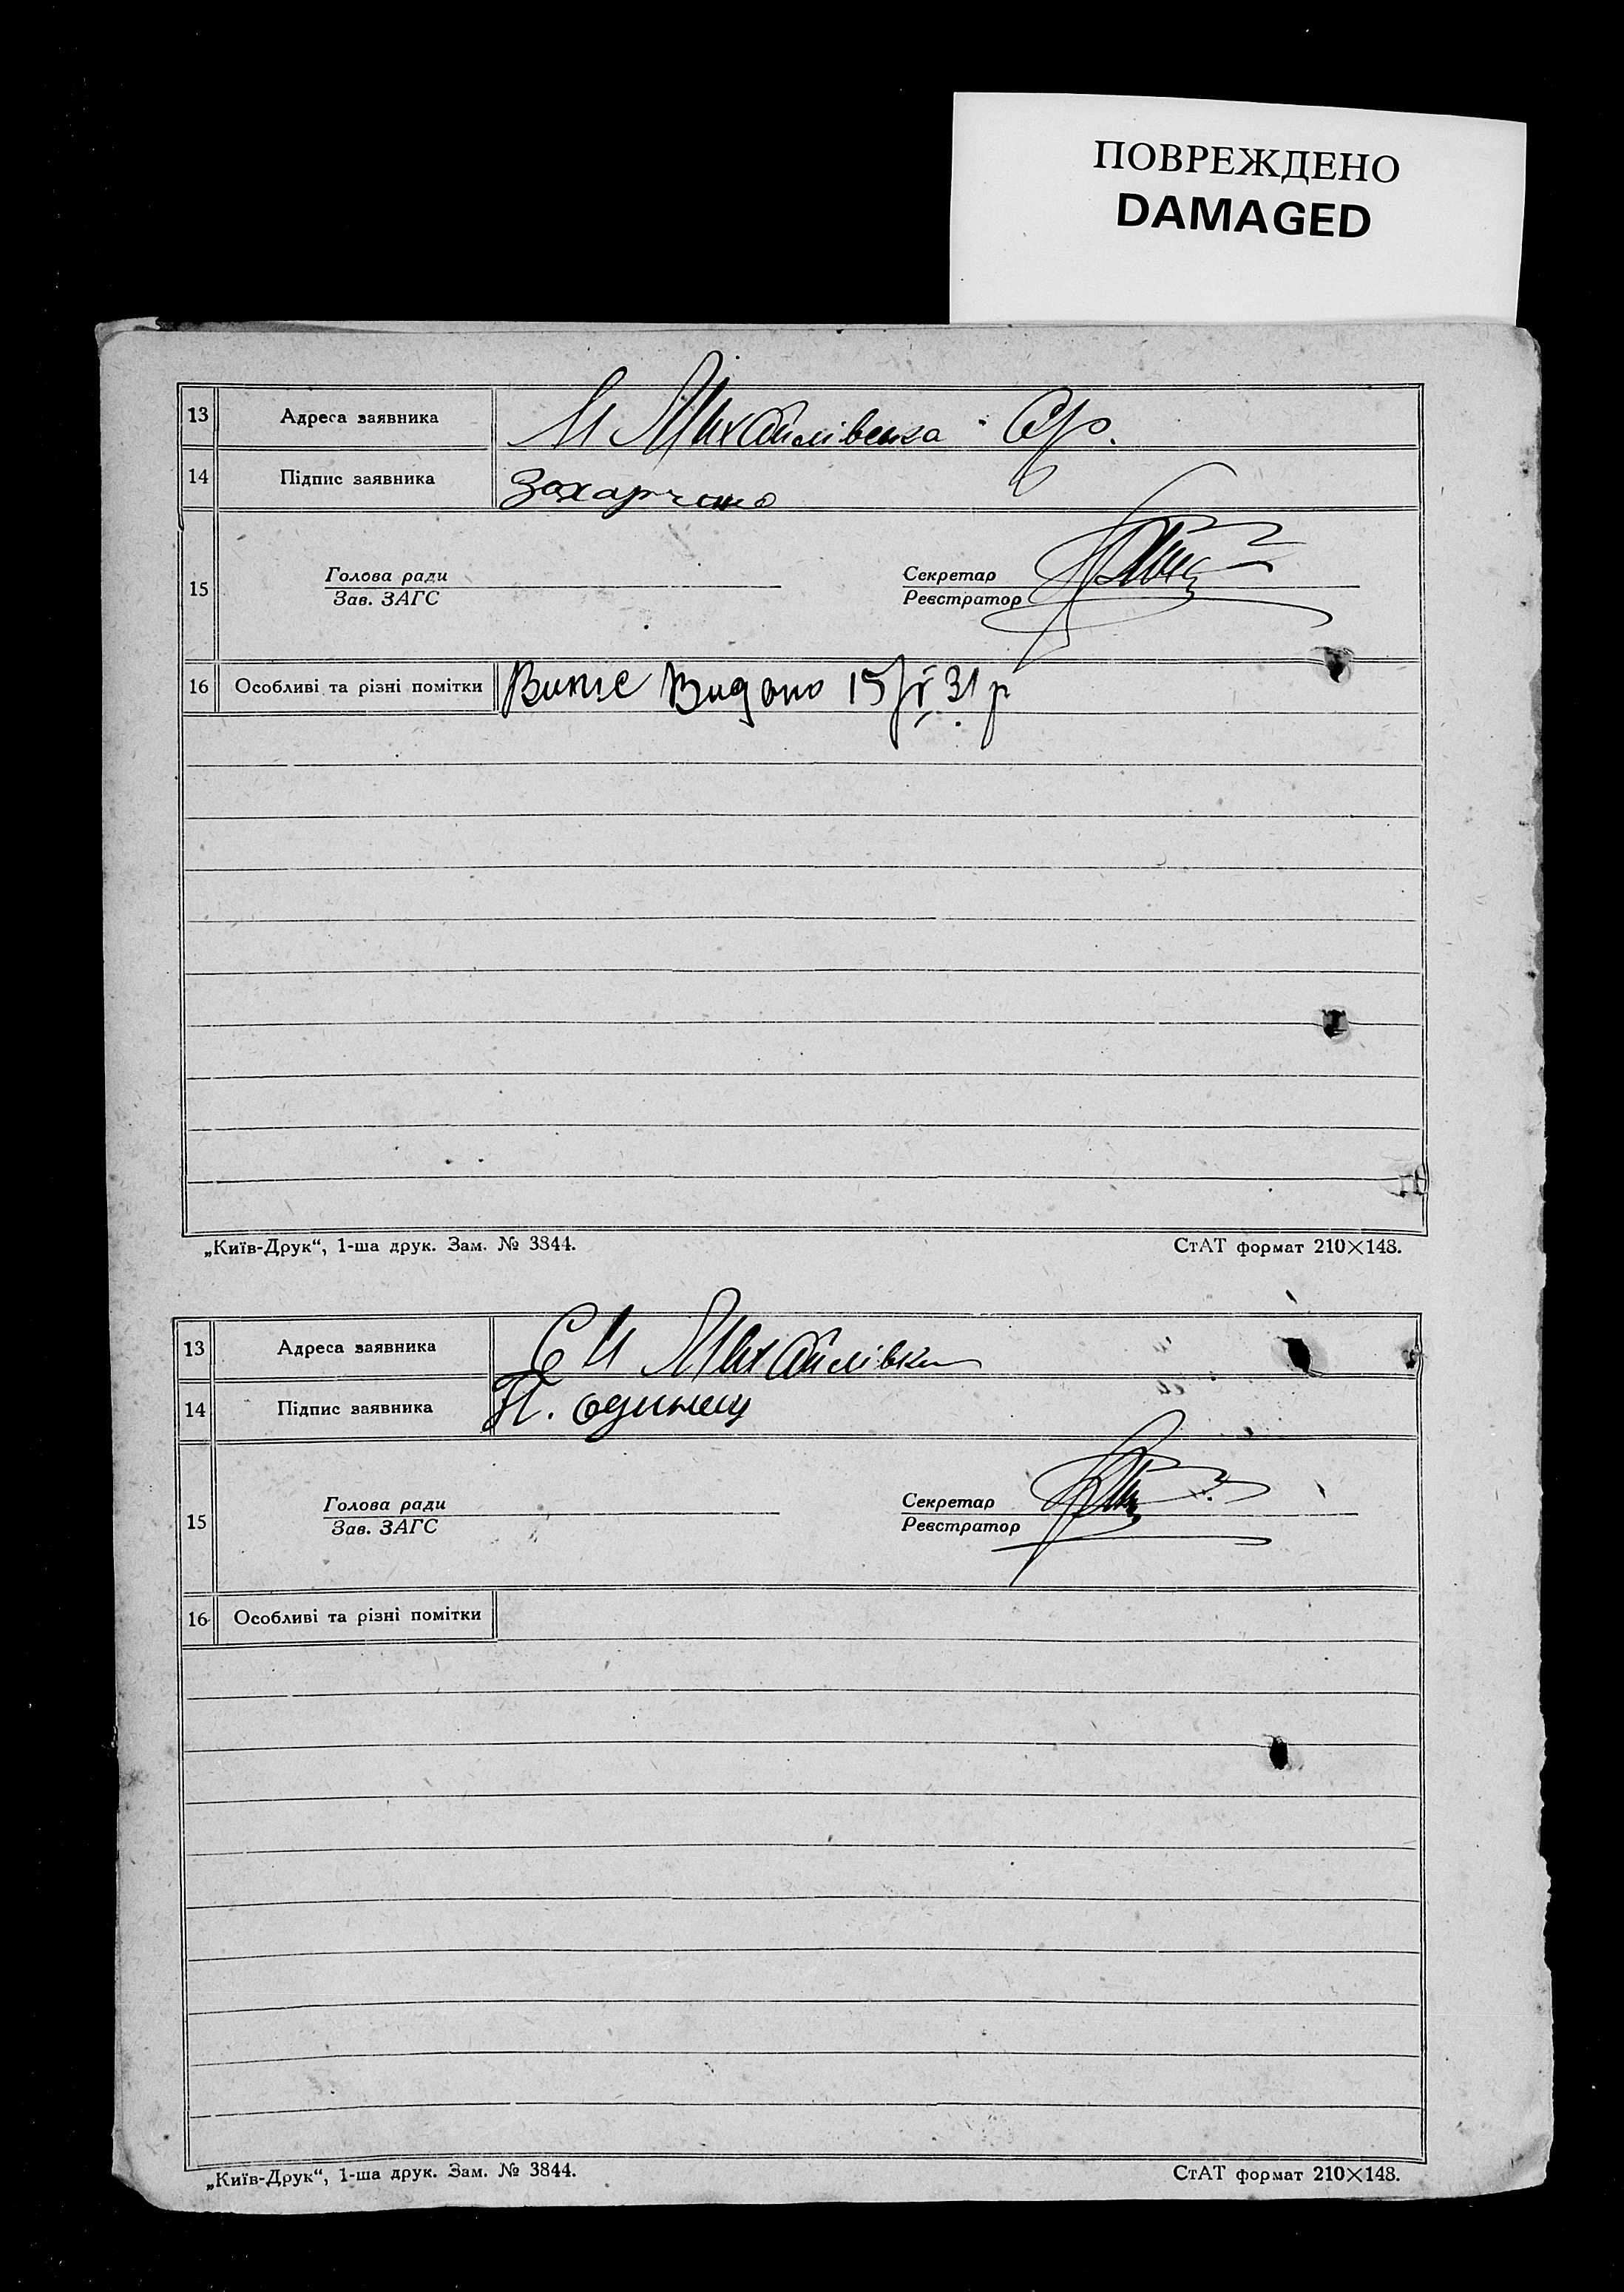 ПОВРЕЖДЕНО
DAMAGED
13 Адреса заявника М Михайлівська Ср.
14 Підпис заявника Захарченко
15 Голова ради Секретар
Зав. ЗАГС Реєстратор
16 Особливі та різні помітки Видано 15/V 31 р
„Київ-Друк“, 1-ша друк. Зам. № 3844. СтАТ формат 210×148.
13 Адреса заявника С М Михайлівка
14 Підпис заявника П. одинец
15 Голова ради Секретар
Зав. ЗАГС Реєстратор
16 Особливі та різні помітки
„Київ-Друк“, 1-ша друк. Зам. № 3844. СтАТ формат 210×148.